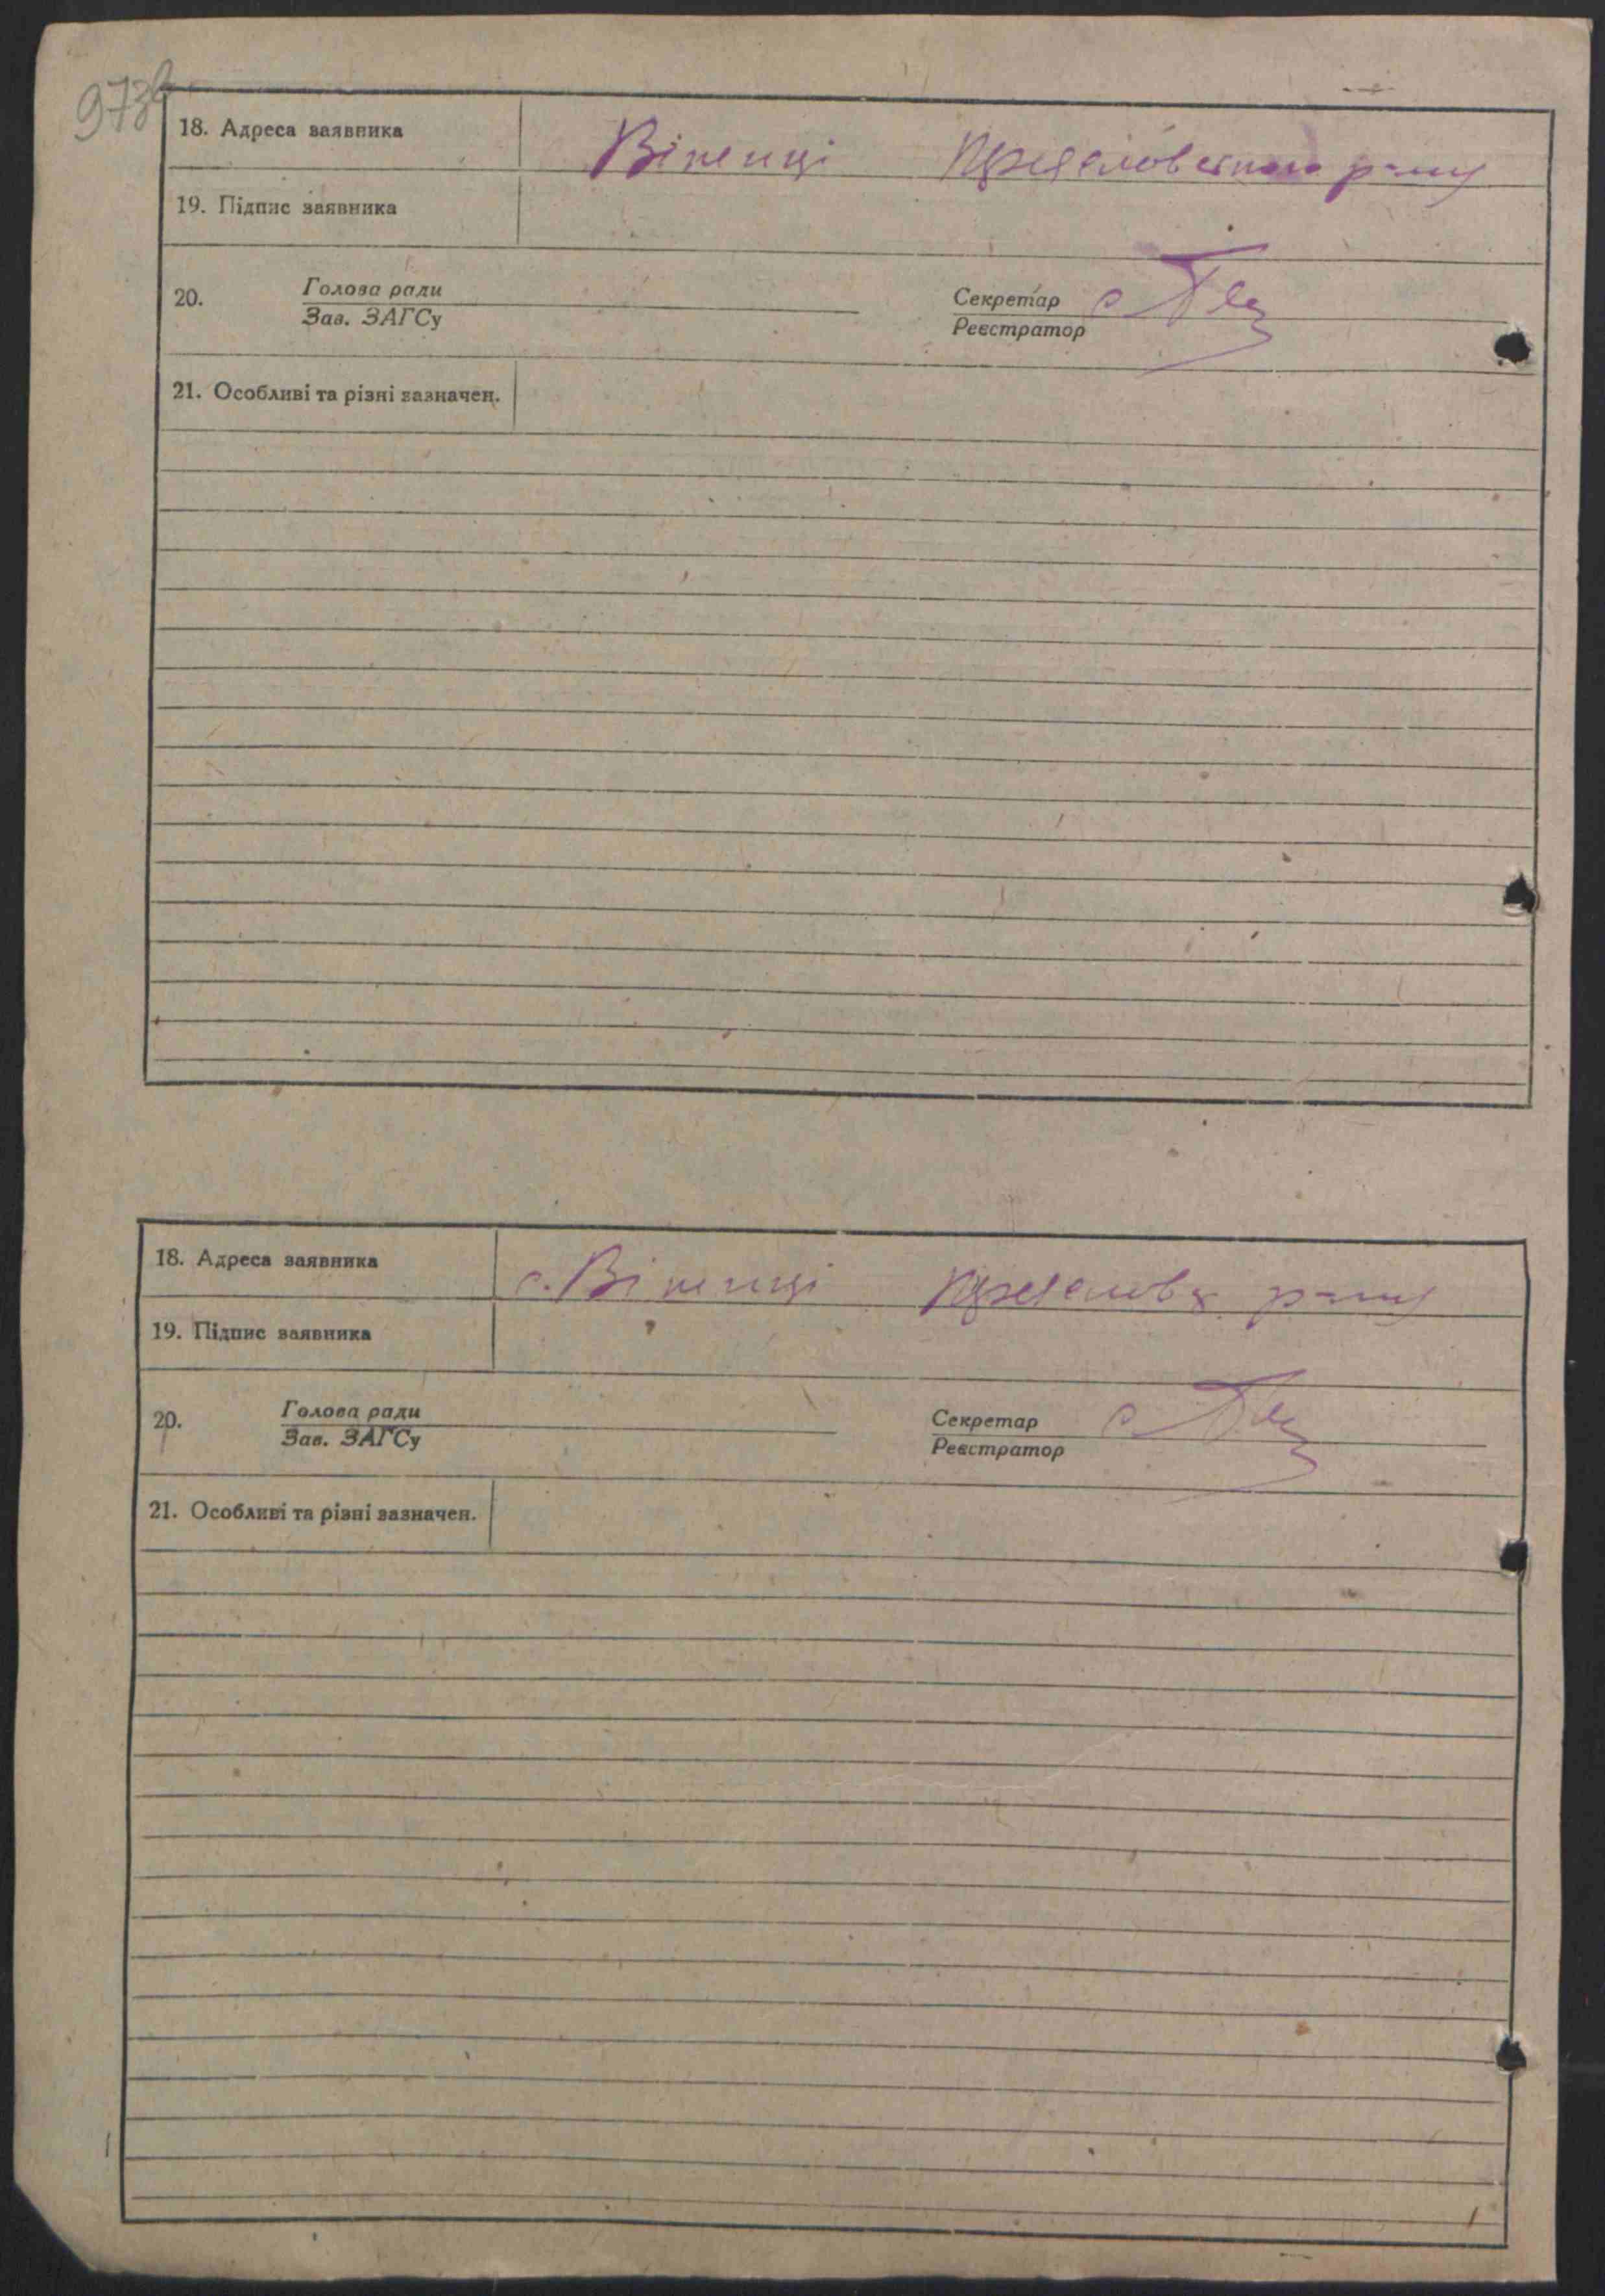 18. Адреса заявника Віненці р-ну
19. Підпис заявника
20. Голова ради Секретар
Зав. ЗАГСу Реєстратор
21. Особливі та різні зазначен.
18. Адреса заявника с. Віненці р-ну
19. Підпис заявника
20. Голова ради Секретар
Зав. ЗАГСу Реєстратор
21. Особливі та різні зазначен.